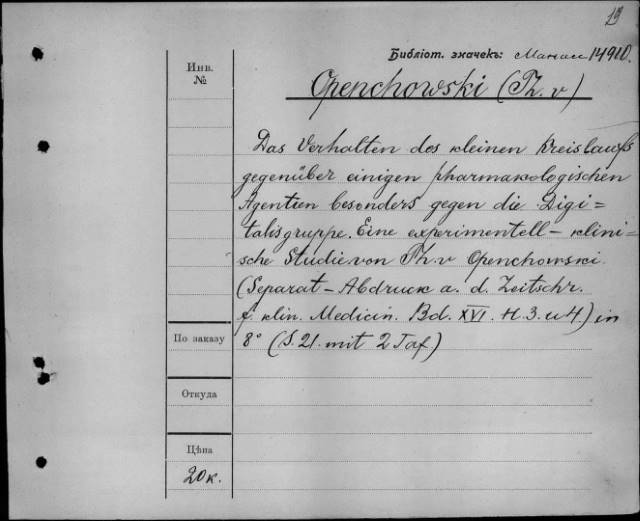 19
Библіот. значекъ: Магаз 14910.
Инв.
№
Openchowski (Th. v)
Das Verhalten des kleinen Kreislaufs
gegenüber einigen pharmakologischen
Agentien besonders gegen die Digi=
talisgruppe. Eine experimentell-klini=
sche Studie von Th. v Openchowski.
(Separat-Abdruck a. d. Zeitschr.
f. klin. Medicin. Bd. XVI. H. 3. u 4) in
По заказу
8° (S. 21. mit 2 Taf)
Откуда
Цѣна
20 к.